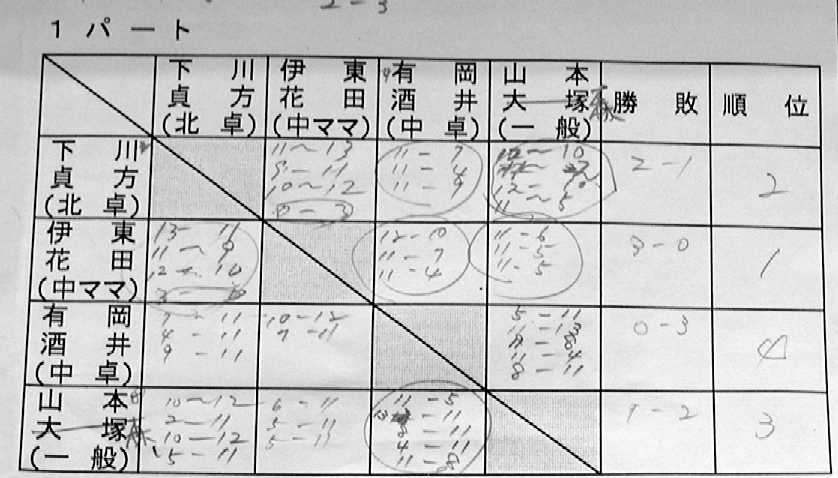 2-3
1 パート
下川 伊東 有岡 山本
貞方 花田 酒井 大塚 森 勝敗 順位
(北卓) (中ママ) (中卓) (一般)
下川 11~13 11-7 10
貞方 9-11 11-4 2-1 2
(北卓) 10~12 11-9 12-10
0-3 11~5
伊東 13-11 12-10 11-6
花田 11~9 11-7 11-5 3-0 1
(中ママ) 12~10 11-4 11-5
3-0
有岡 7-11 10-12 5-11
酒井 4-11 7-11 0-3 4
(中卓) 9-11 8-11
山本 10~12 6-11 11-5
大塚 森 2-11 5-11 13-11 1-2 3
(一般) 10-12 5-11 4-11
5-11 11-8